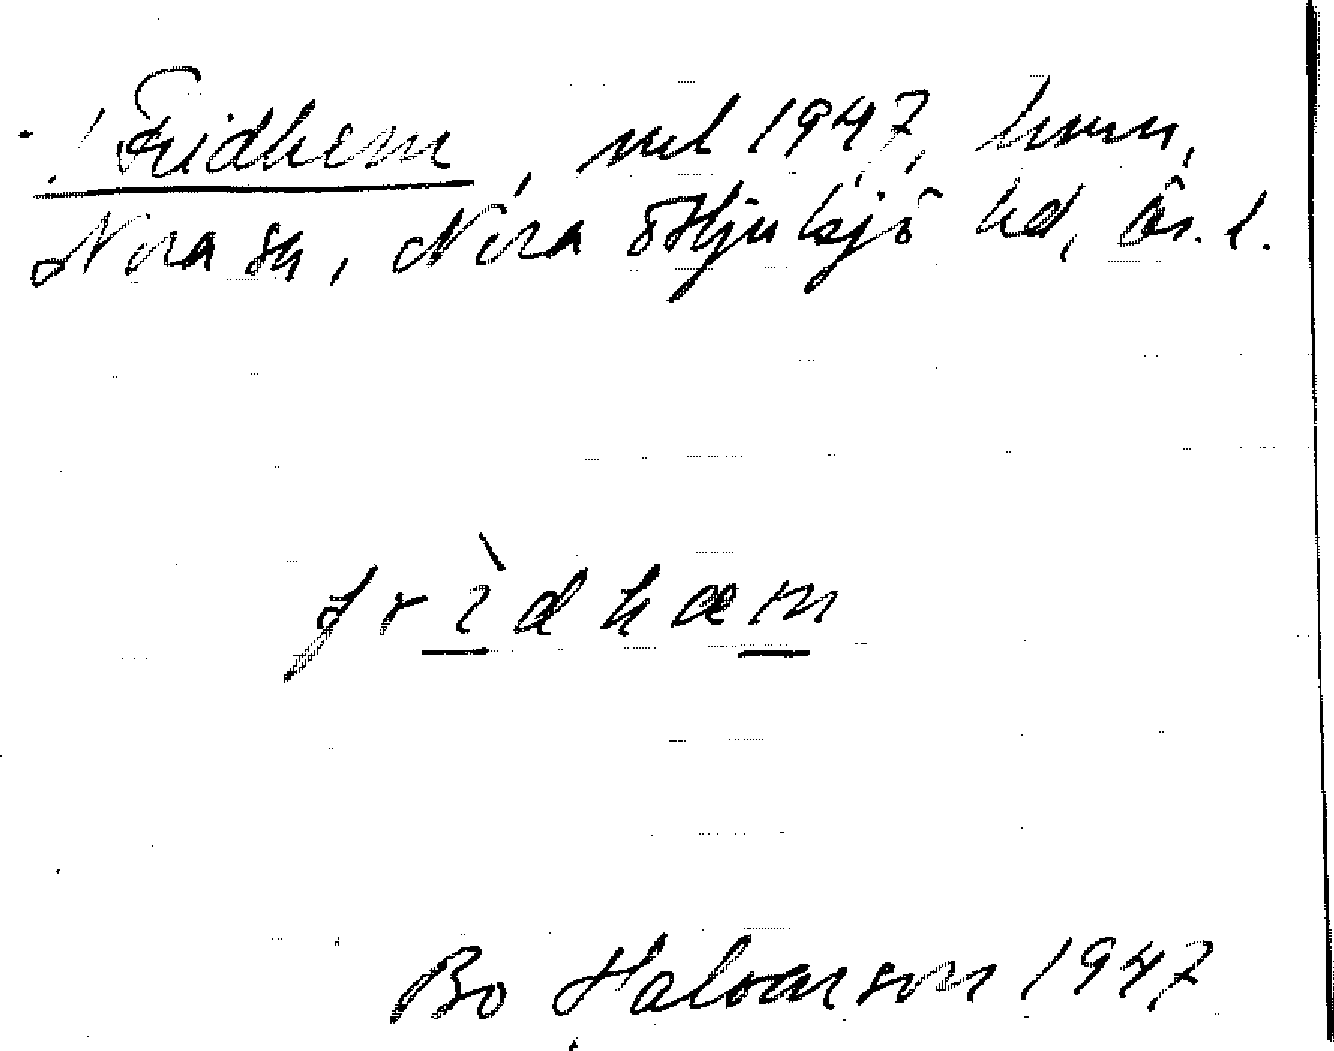 ! Fridhem, nel 1947, hmn,
Nora sn, Nora o Hjulsjö hd, Ör. l.
frìdhæm
Bo Halvarson 1947